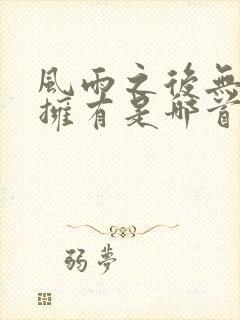 風雨之後無
擁有是那首
弱夢